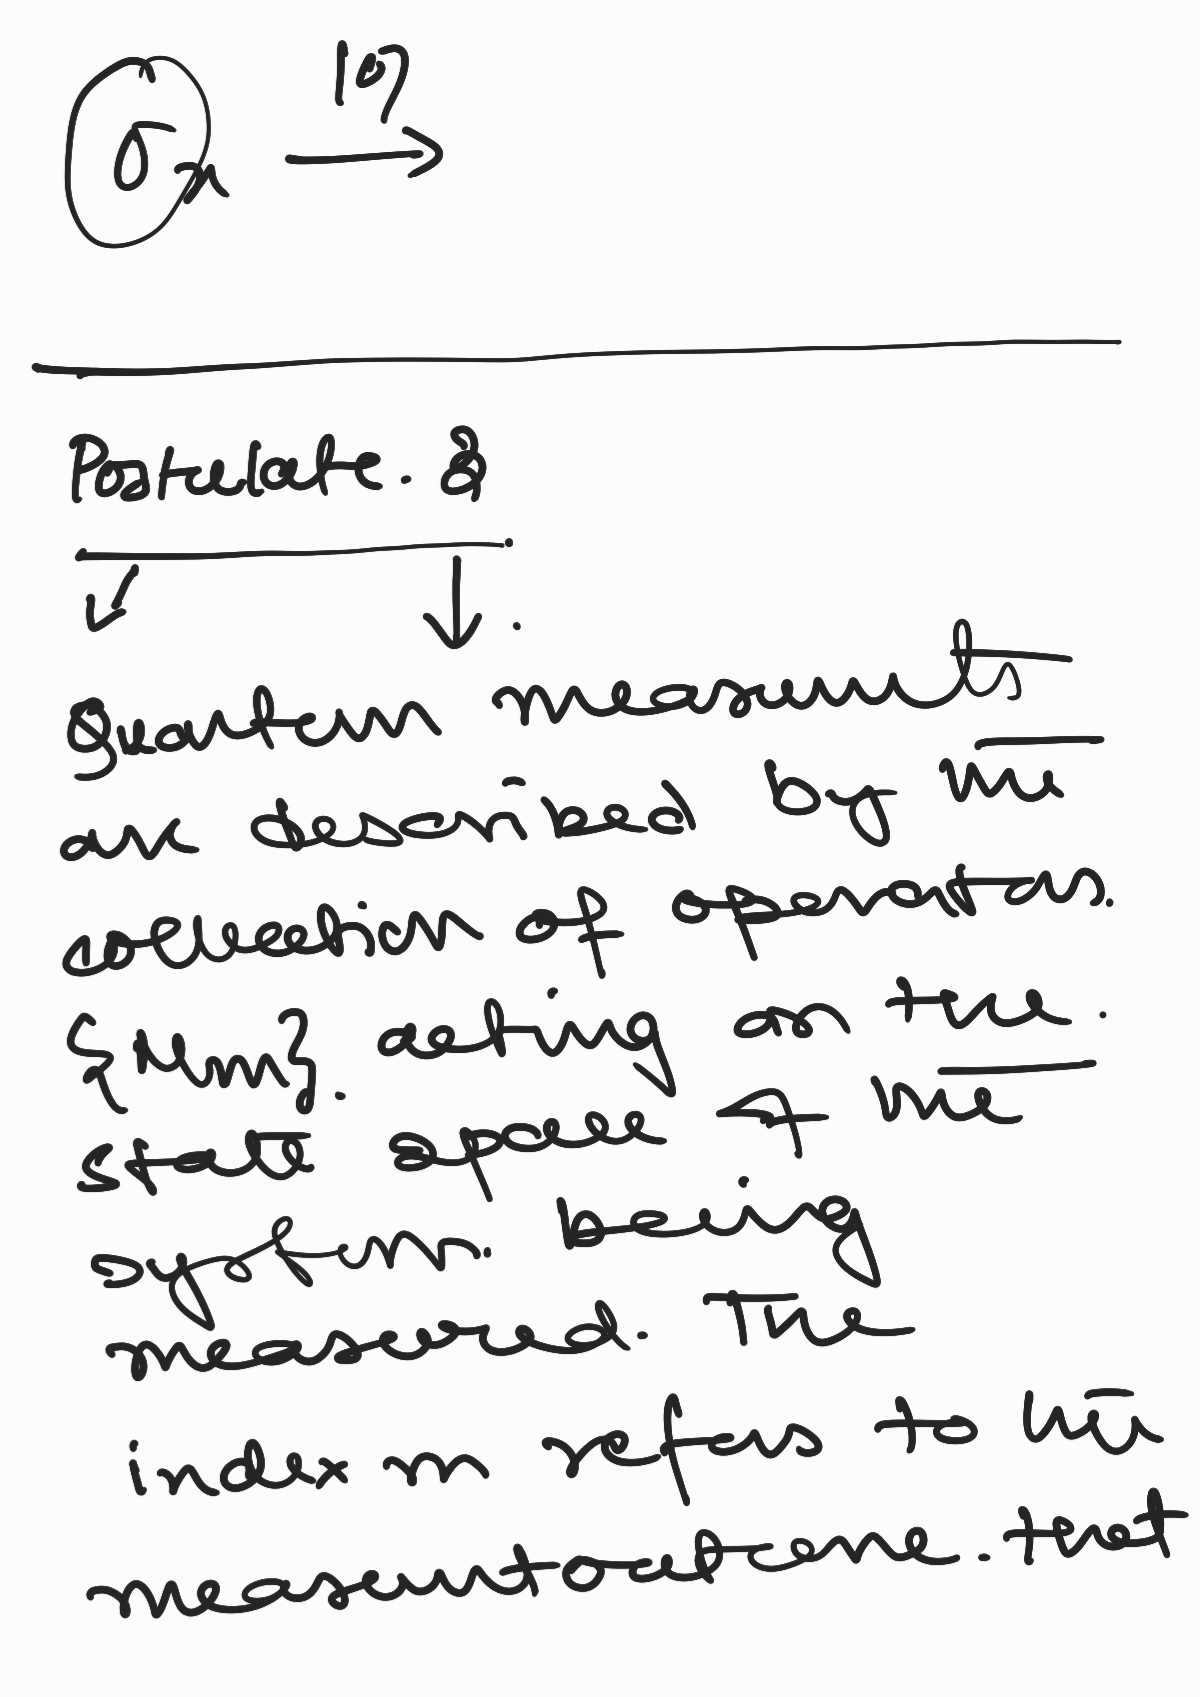 σx 10?
Postulate. 3
Quantum measurements
are described by the
collection of operators.
{Mm}. acting on the.
state space of the
system. being
measured. The
index m refers to the
measunt outcome. that